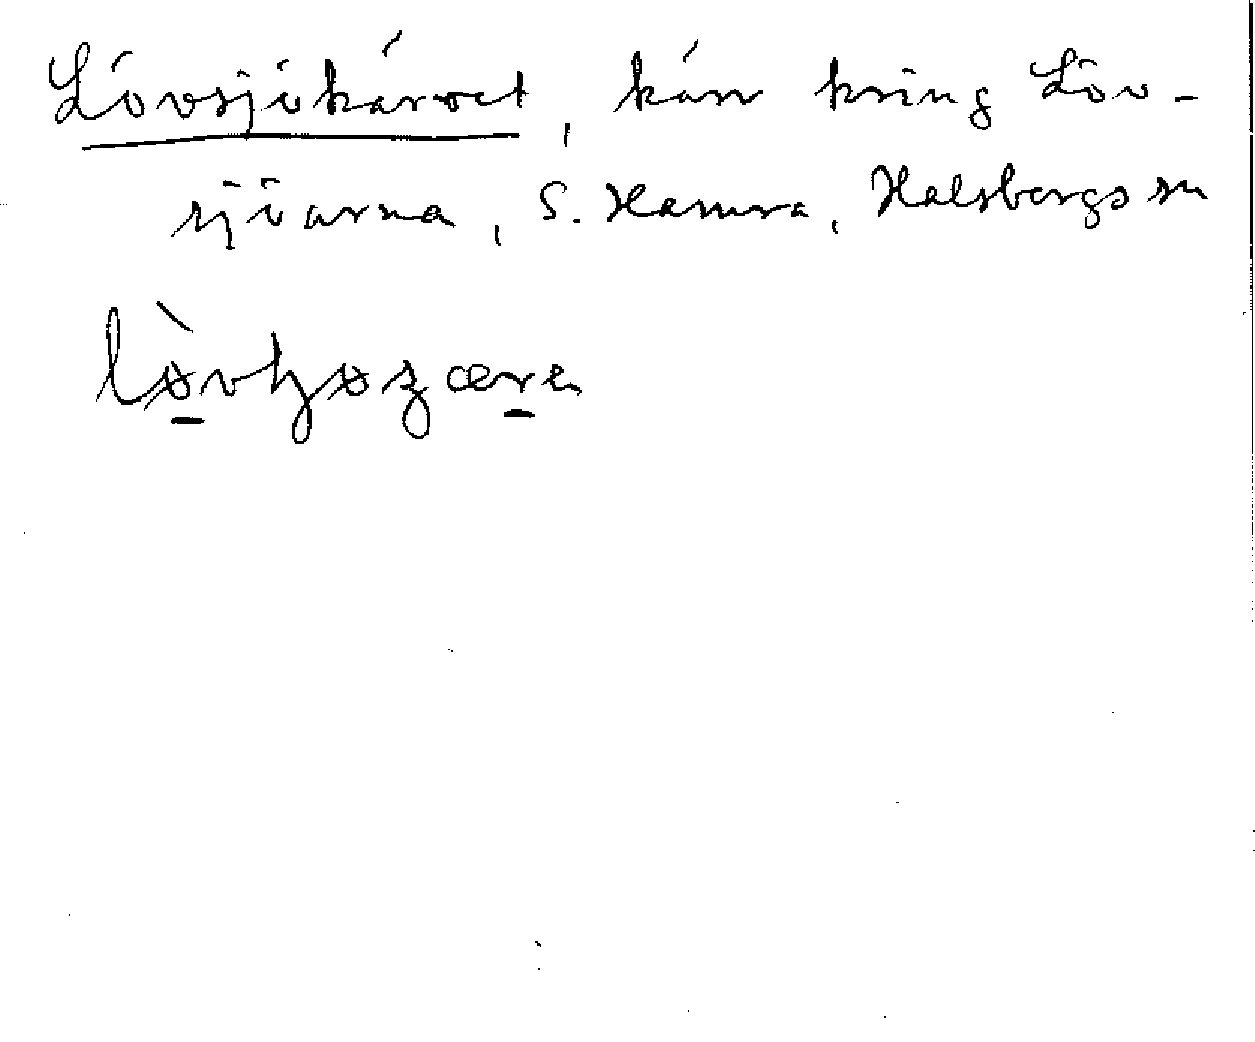 Lövsjökärret, kärr kring Löv-
sjöarna, S. Hamra, Halsbergs sn